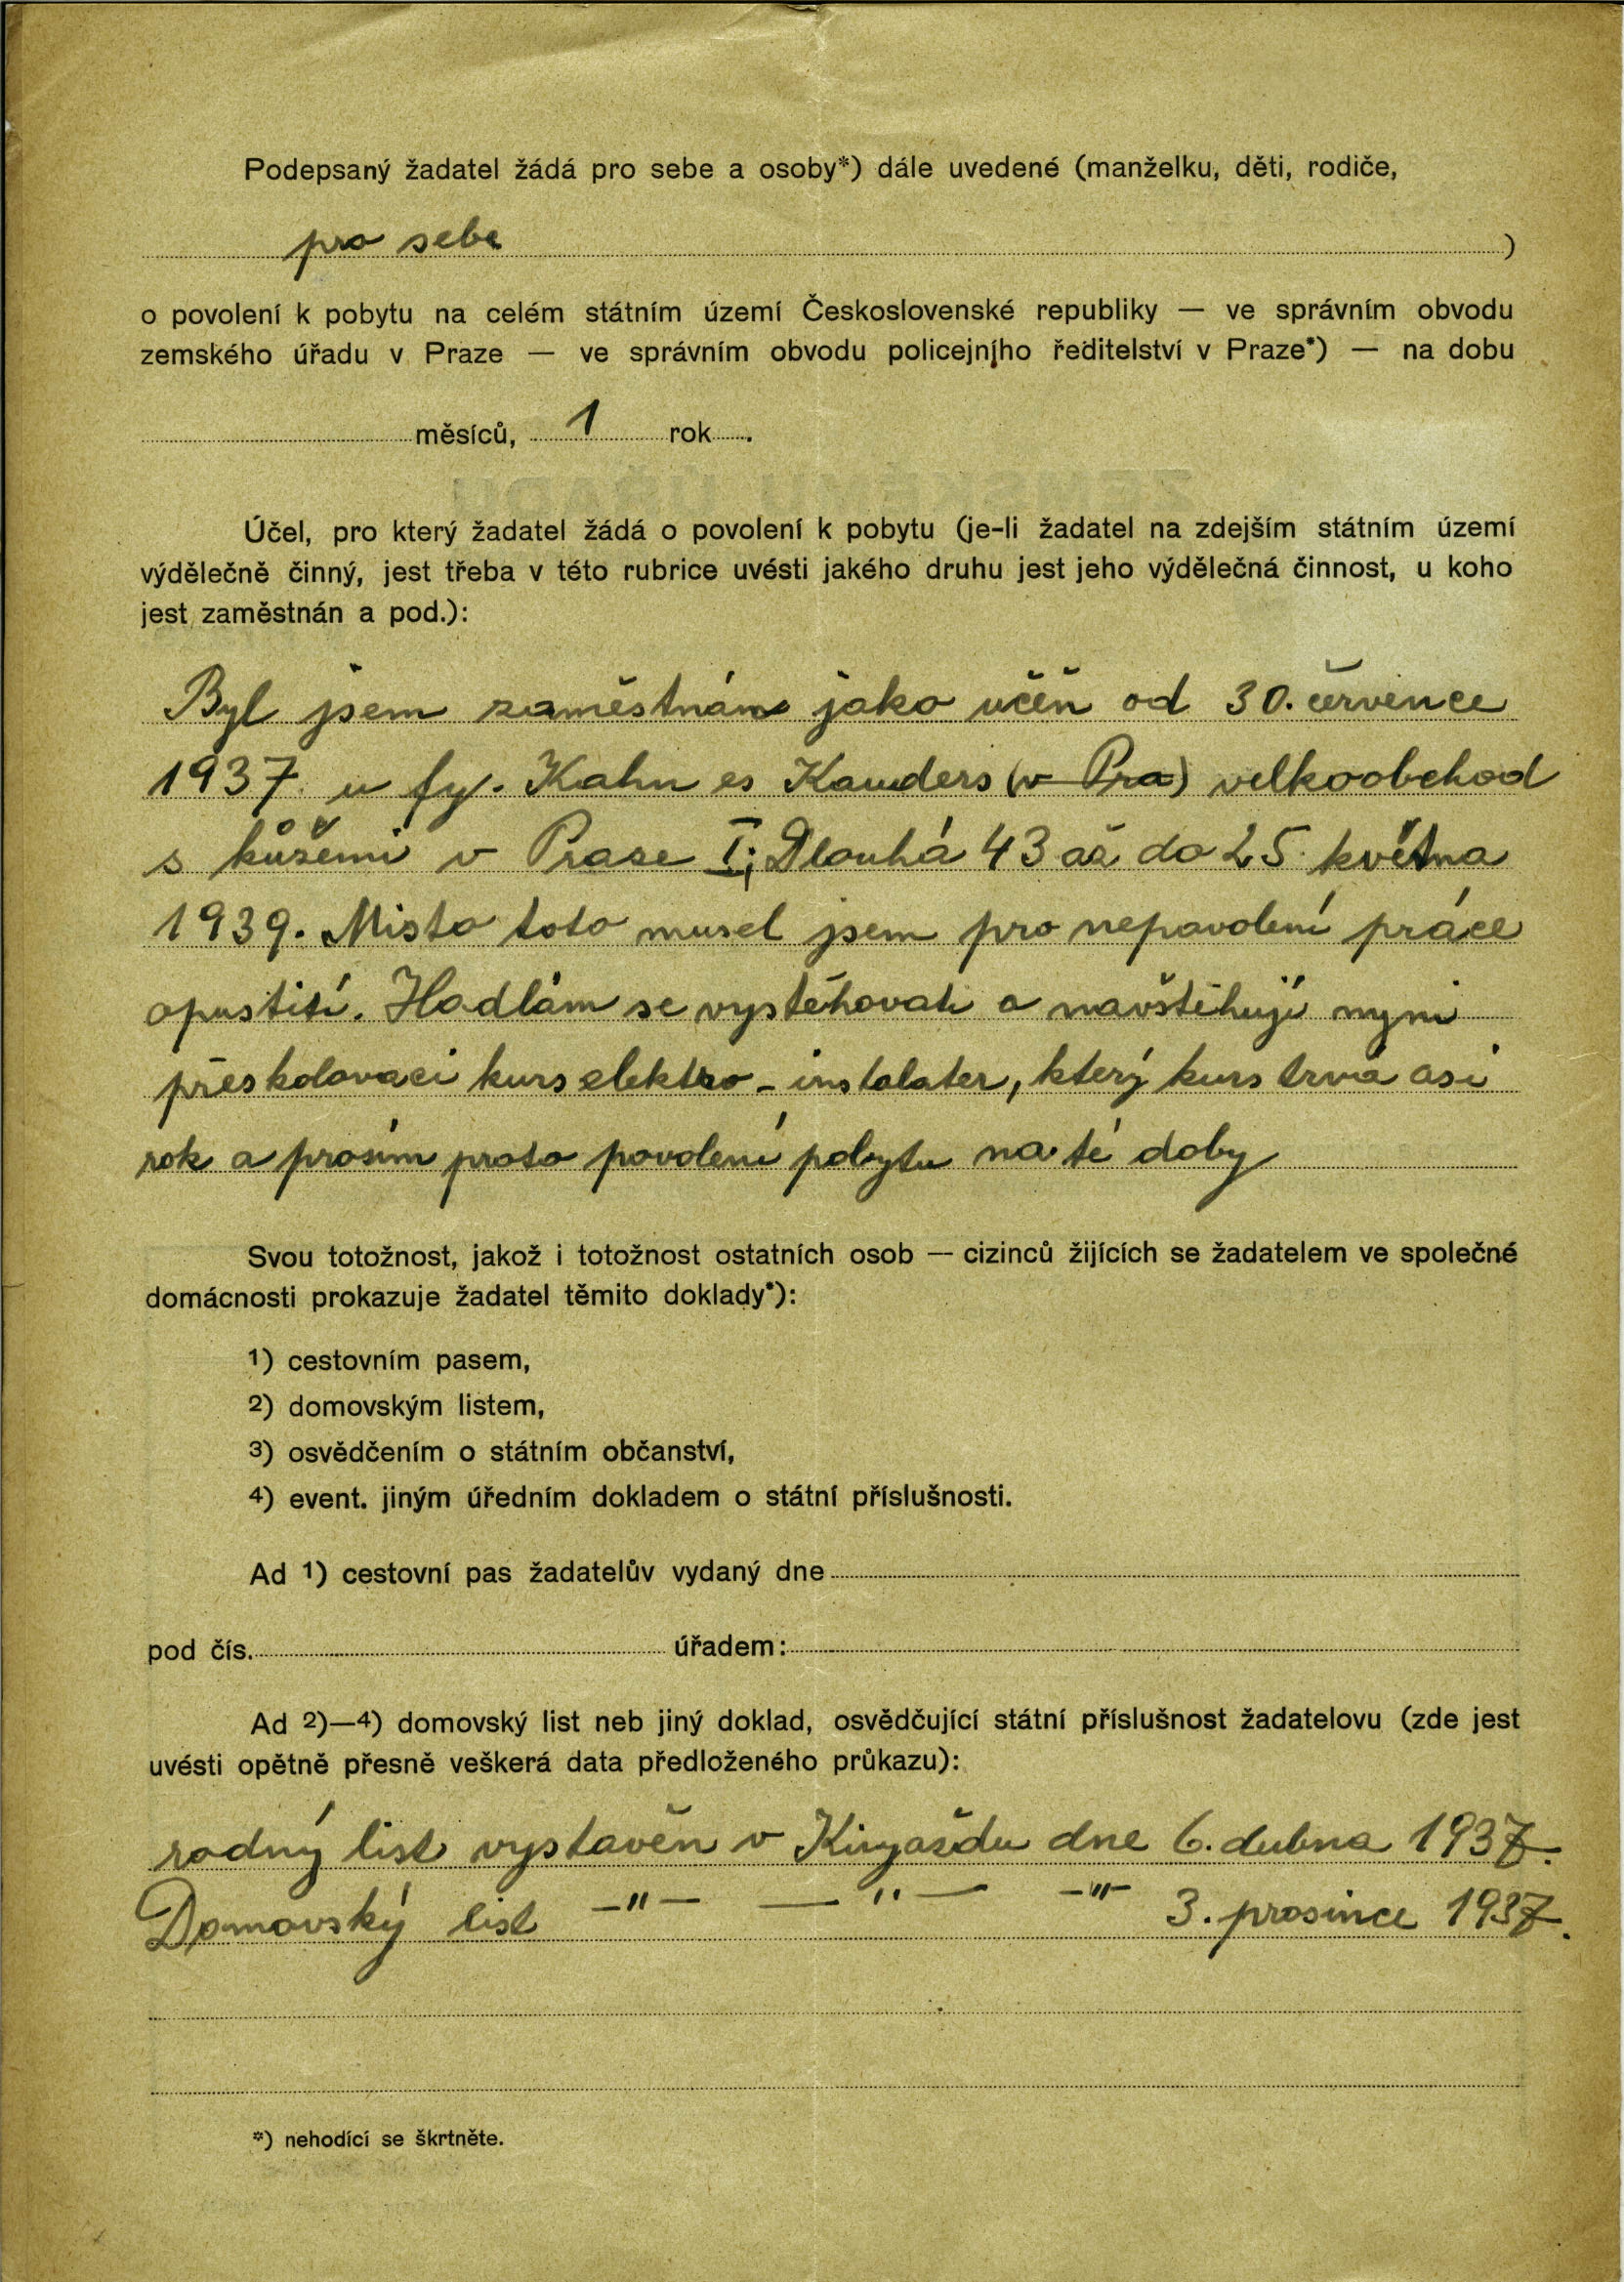 Podepsaný žadatel žádá pro sebe a osoby*) dále uvedené (manželku, děti, rodiče,
pro sebe )
o povolení k pobytu na celém státním území Československé republiky — ve správním obvodu
zemského úřadu v Praze — ve správním obvodu policejního ředitelství v Praze*) — na dobu
měsíců, 1 rok .
Účel, pro který žadatel žádá o povolení k pobytu (je-li žadatel na zdejším státním území
výdělečně činný, jest třeba v této rubrice uvésti jakého druhu jest jeho výdělečná činnost, u koho
jest zaměstnán a pod.):
Byl jsem zaměstnán jako učěň od 30. července
1937. u fy. Kahn es Kauders (v Pra) velkoobchod
s kůžemi v Praze I; Dlouhá 43 až do 25. května
1939. Misto toto musel jsem pro nepovolení práce
opustiti. Hodlám se vystěhovati a navštěhuji nyni
přeskolovaci kurs elektro - instalater, který kurs trvá asi
rok a prosím proto povolení pobytu na té doby
Svou totožnost, jakož i totožnost ostatních osob — cizinců žijících se žadatelem ve společné
domácnosti prokazuje žadatel těmito doklady*):
1) cestovním pasem,
2) domovským listem,
3) osvědčením o státním občanství,
4) event. jiným úředním dokladem o státní příslušnosti.
Ad 1) cestovní pas žadatelův vydaný dne
pod čís. úřadem:
Ad 2)—4) domovský list neb jiný doklad, osvědčující státní příslušnost žadatelovu (zde jest
uvésti opětně přesně veškerá data předloženého průkazu):
rodný list vystavěn v dne 6. dubna 1937.
Domovský list —"— —"— —"— 3. prosince 1937.
*) nehodící se škrtněte.